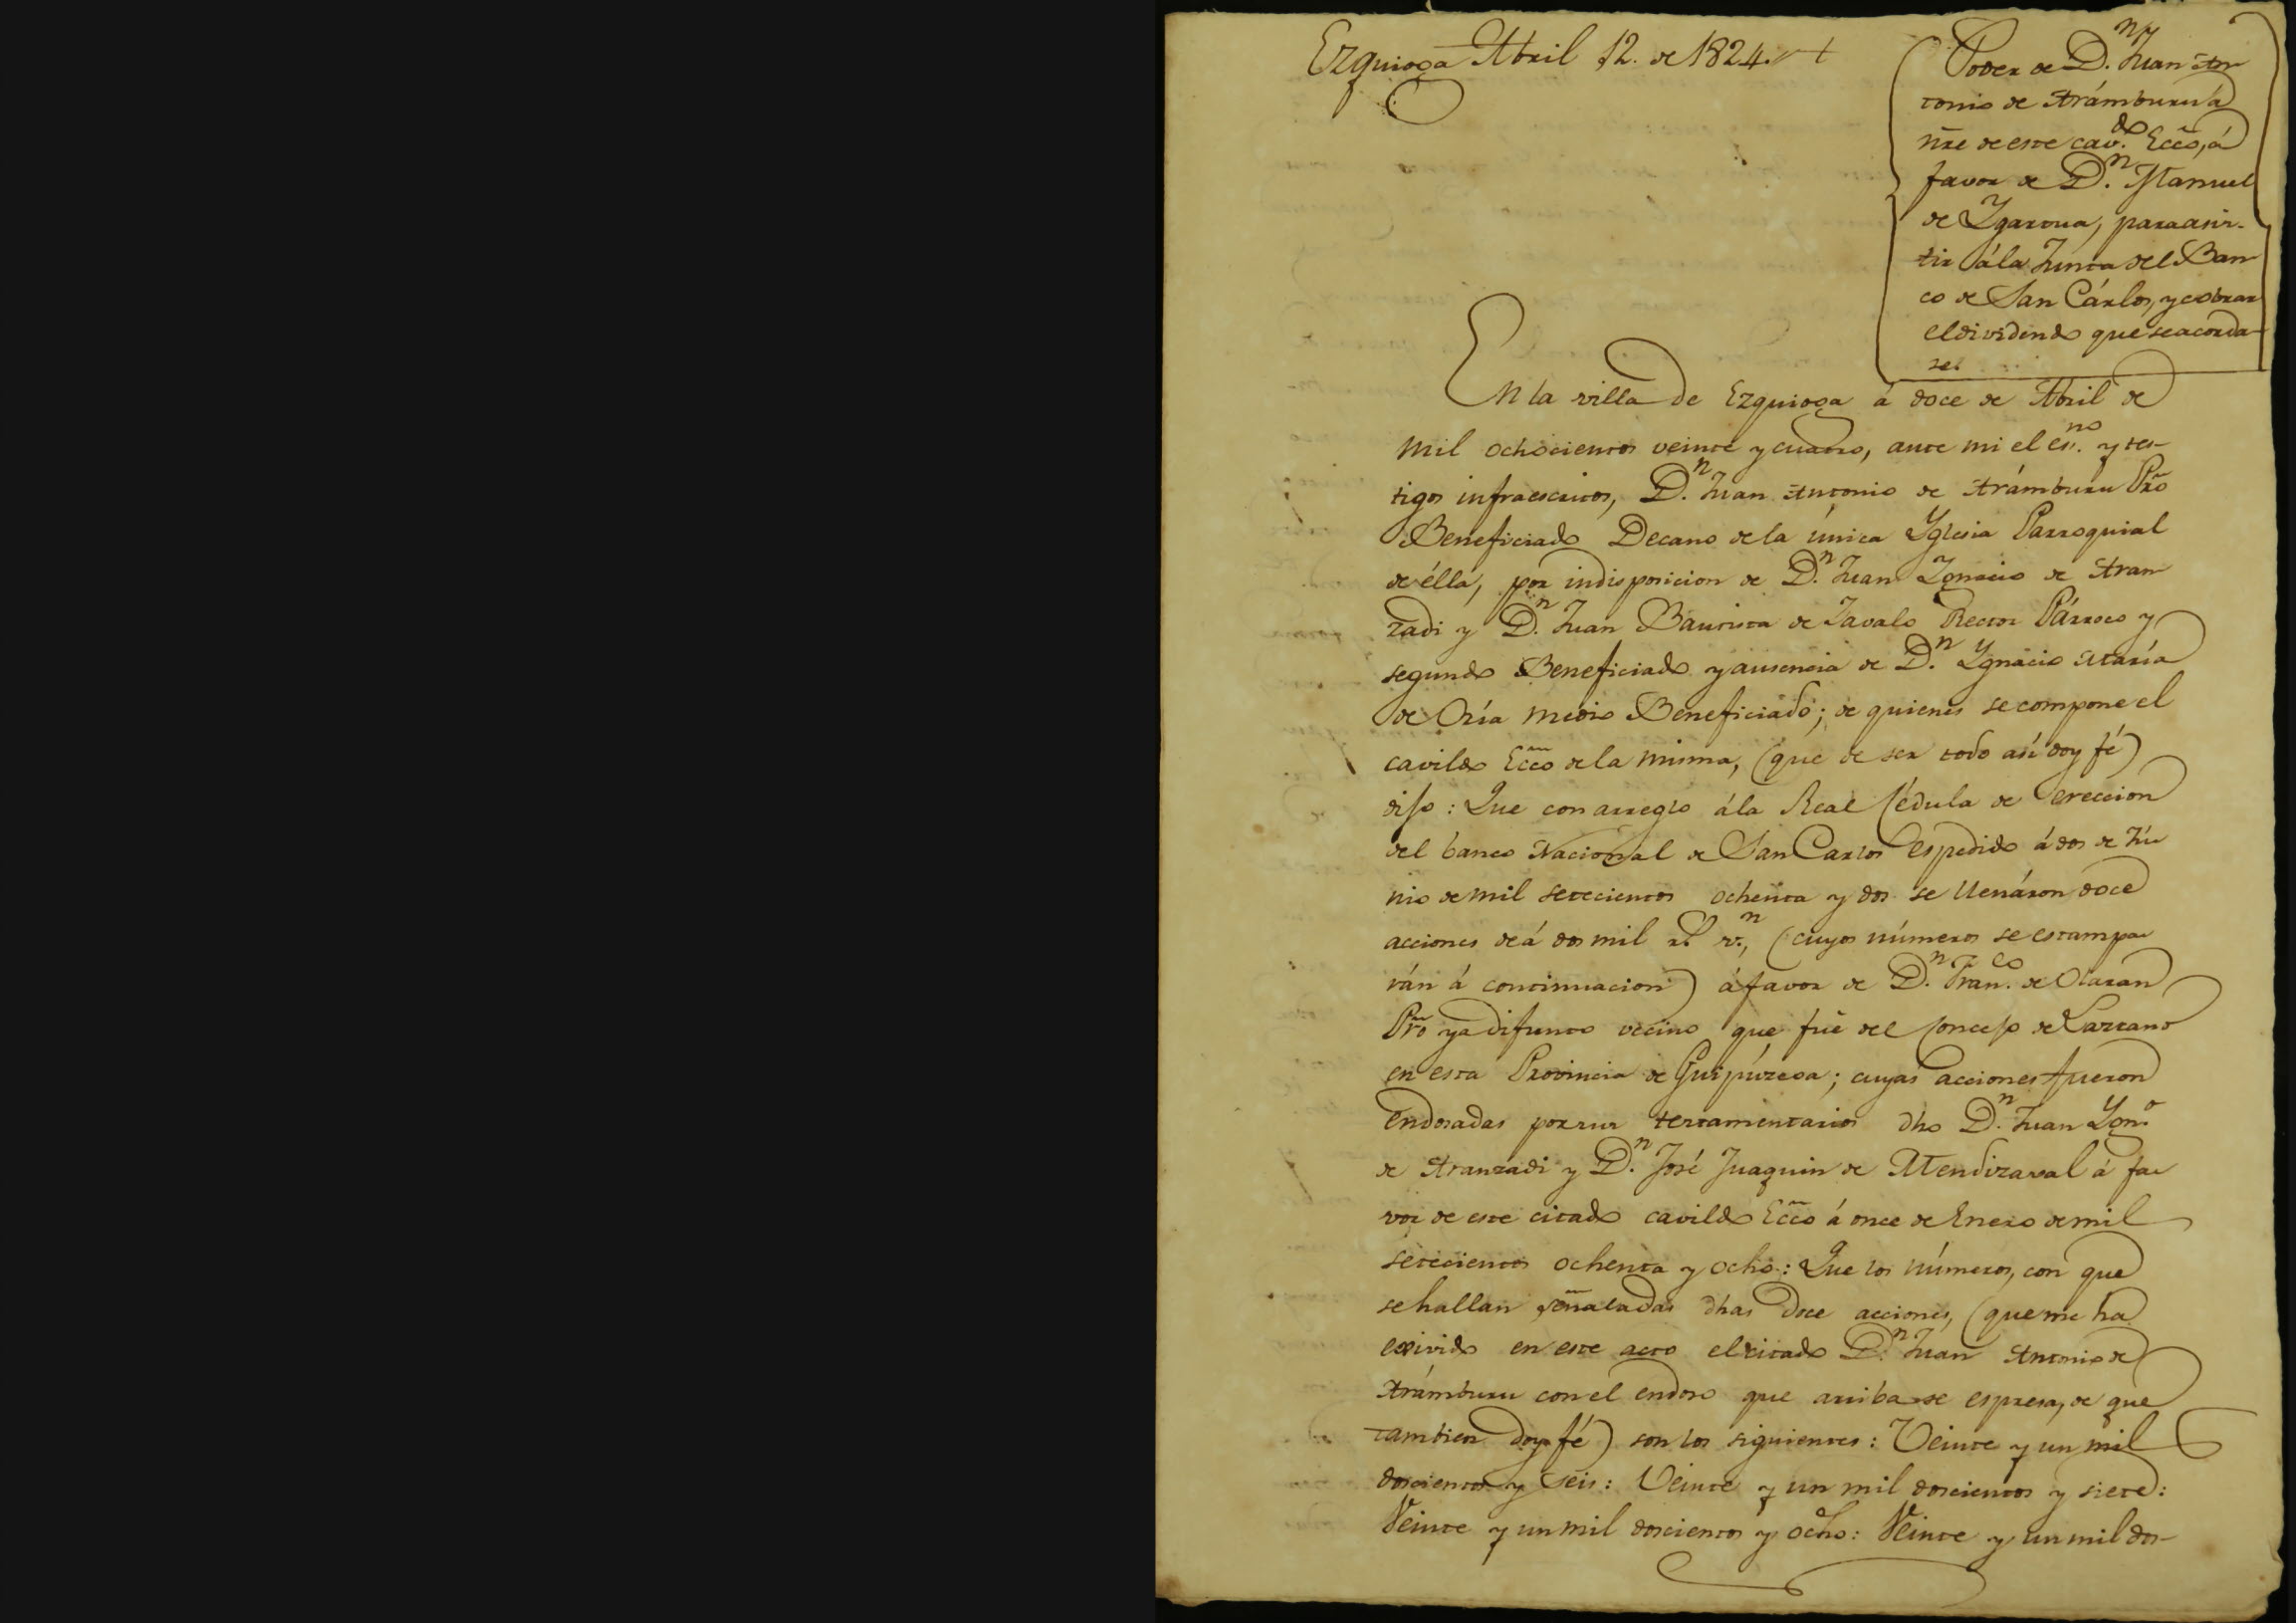 Ezquioga Abril 12. de 1824.
Poder de D.n Juan An-
tonio de Arámburu á
nre de este cav.do Ecco, á
favor de D.n Manuel
de Ygartua, para asis-
tir á la Junta del Ban-
co de San Cárlos, y cobrar
el dividendo que se acorda-
se.
En la villa de Ezquioga á doce de Abril de
mil ochocientos veinte y cuatro, ante mi el es.no y tes-
tigos infraescritos, D.n Juan Antonio de Arámburu Pro
Beneficiado Decano de la única Yglesia Parroquial
de élla, por indisposicion de D.n Juan Ygnacio de Aran-
zadi y D.n Juan Bautista de Zavalo Rector Párroco y
segundo Beneficiado y ausencia de D.n Ygnacio María
de Oría medio Beneficiado; de quienes se compone el
cavildo Ecco de la misma, (que de ser todo así doy fé)
dijo: Que con arreglo á la Real Cédula de ereccion
del banco Nacional de San Carlos espedido á dos de Ju-
nio de mil setecientos ochenta y dos se llenáron doce
acciones de á dos mil r.s v.n, (cuyos números se estampa-
rán á continuacion) á favor de D.n Fran.co de Olaran
Pro ya difunto vecino que fué del Concejo de Lazcano
en esta Provincia de Guipúzcoa; cuyas acciones fueron
endosadas por sus testamentarios dho D.n Juan Ygn.o
de Aranzadi y D.n José Juaquin de Mendizaval á fa-
vor de este citado cavildo Ecco á once de Enero de mil
setecientos ochenta y ocho: Que los números, con que
se hallan señaladas dhas doce acciones, (que me ha
exivido en este acto el citado D.n Juan Antonio de
Arámburu con el endoso que arriba se espresa, de que
tambien doy fé) son los siguientes: Veinte y un mil
doscientos y seis: Veinte y un mil doscientos y siete:
Veinte y un mil doscientos y ocho: Veinte y un mil dos-